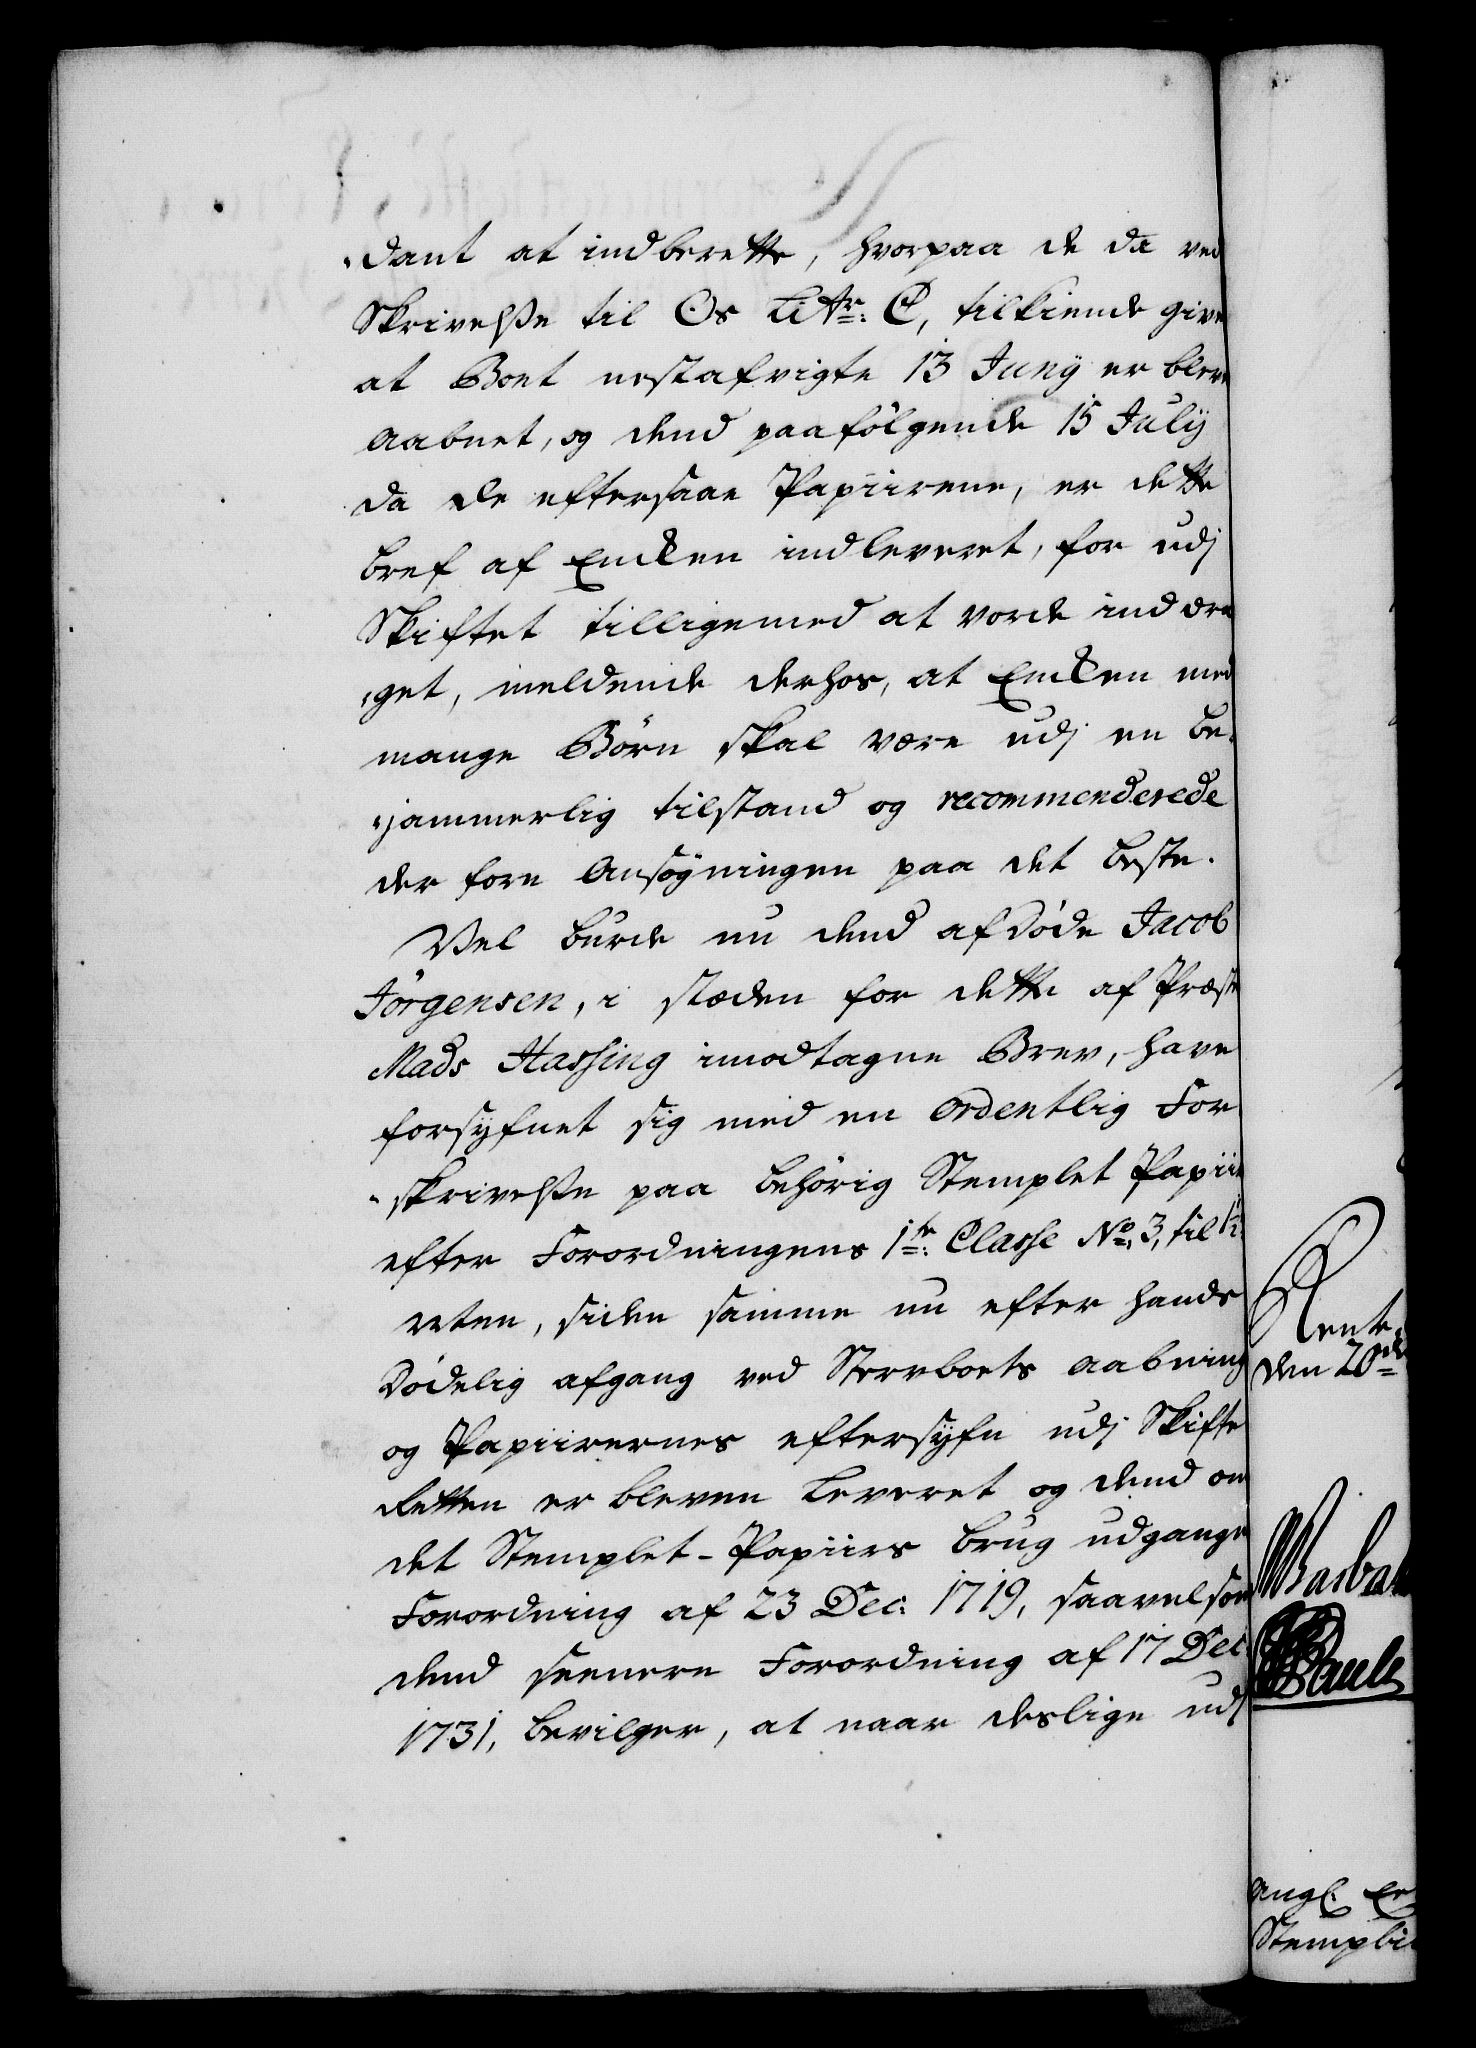 -dant at indberette, hvorpaa de da ved
Skrivelsse til Os Littr: C, tilkiende give
at Boet nestafvigte 13 Juny er bleve
aabnet, og dend paafölgende 15 July
da de eftersaae Papiirene, er dette
bref af Enken indleveret, for udj
Skiftet tilligemed at vorde inddra
-get, meldende derhos, at Enken med
mange Börn skal være udj en be-
-jammerlig tilstand og recommenderede
der fore Ansögningen paa det beste.
Vel burde nu dend afdöde Jacob
Jörgensen, i stæden for dette af Præst
Mads Hassing imodtagne Brev, have
forsyfnet sig med en ordentlig For
-skrivelsse paa behörig Stemplet Papiir
efter Forordningens 1te: Classe No. 3, til
siden samme nu efter hands
Dödelig afgang ved Stervboets aabning
og Papiirernes eftersyfn udj Skifte
Retten er bleven leveret og dend om
det Stemplet-Papiirs brug udgangne
Forordning af 23 Dec: 1719, saavelsom
dend seenere Forordning af 17 Dec
1731, bevilger, at naar deslige udj
Rente-
den 20de
Stempli